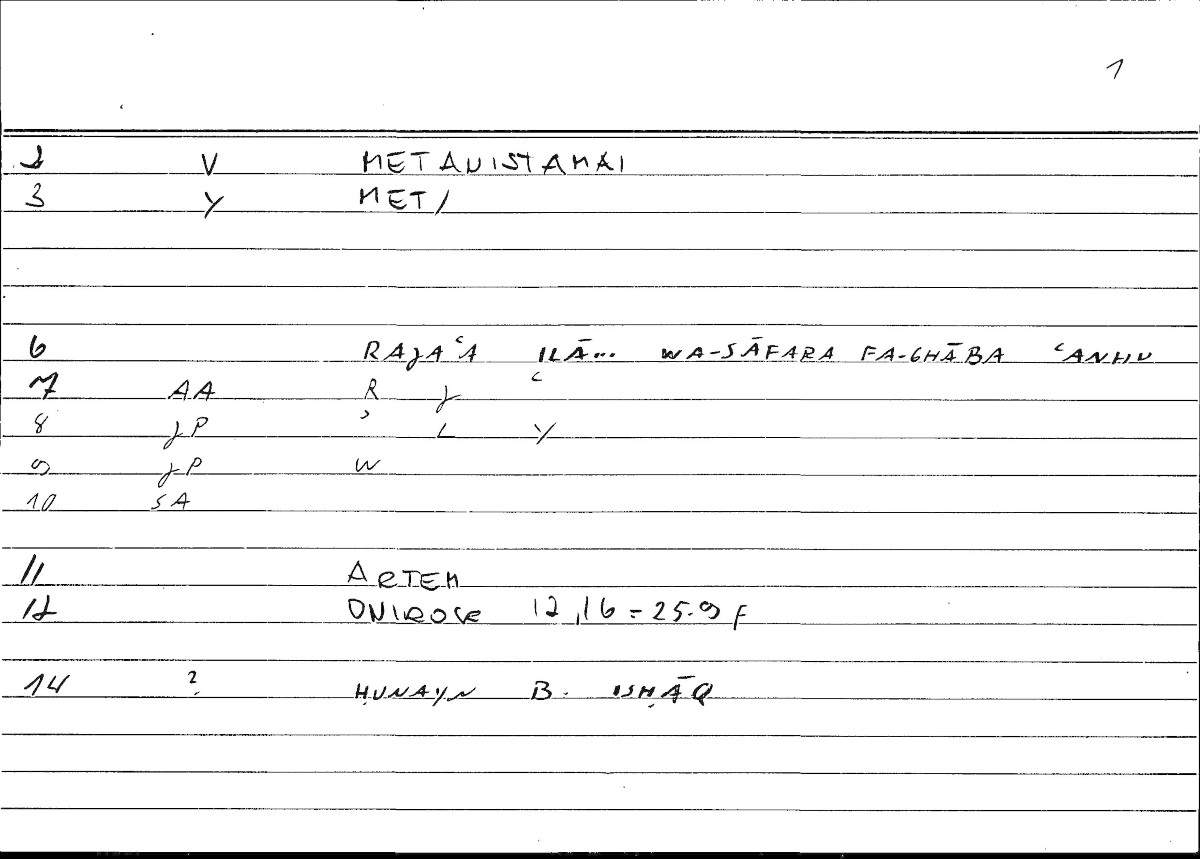 1
2 V METANISTAMAI
3 Y MET/
6 RAJAʿA ILĀ... WA-SĀFARA FA-GHĀBA ʿANHU
7 AA R J ʿ
8 JP ʾ L Y
9 JP W
10 SA
11 ARTEM
12 ONIROCR 12,16 = 25.9 F
14 ? ḤUNAYN B. ISḤĀQ